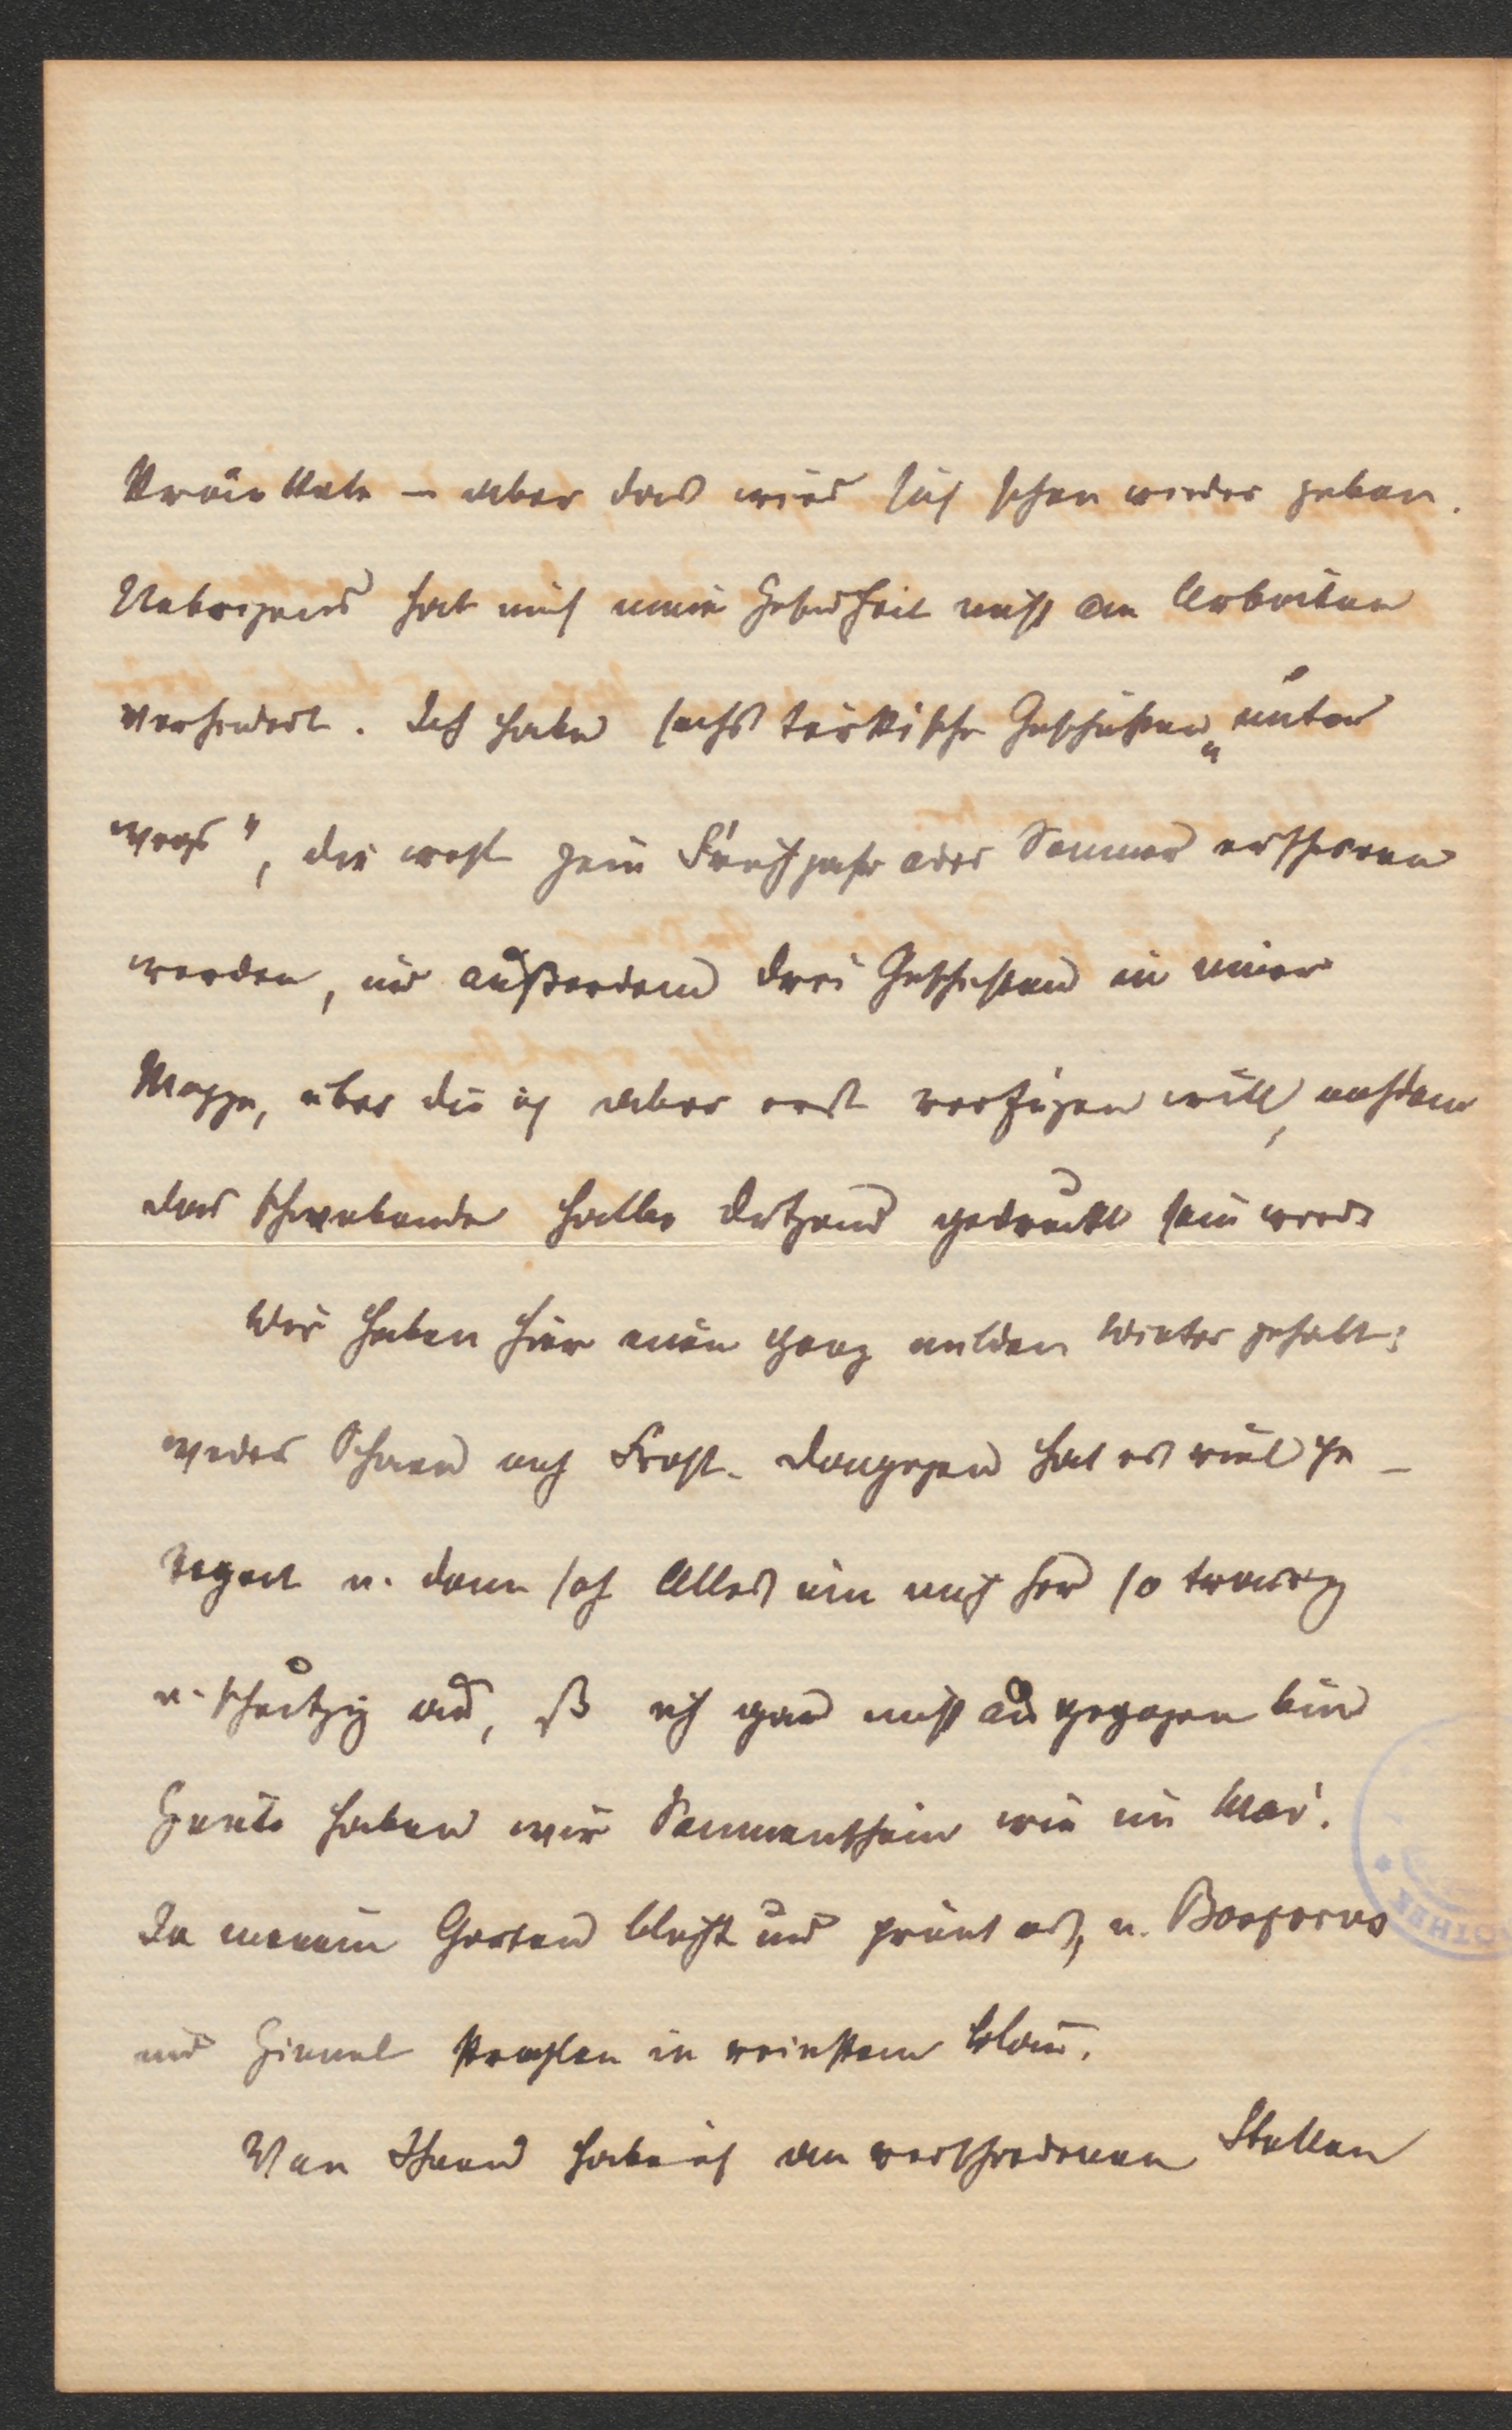 kränkelte – aber das wird sich schon wieder geben.
Uebrigens hat mich meine Gesundheit nicht am Arbeiten
verhindert. Ich habe sechs türkische Geschichten „unter
wegs", die wohl zum Frühjahr oder Sommer erscheinen
werden, und außerdem drei Geschichten in meiner
Mappe, über die ich aber erst verfügen will, nachdem
das schwebende halbe Dutzend gedruckt sein wird.
Wir haben hier einen ganz milden Winter gehabt:
weder Schnee noch Frost. Dagegen hat es viel ge-
regnet u. dann sah Alles um mich her so traurig
u. schmutzig aus, daß ich gar nicht ausgegangen bin
Heute haben wir Sonnenschein wie im Mai.
In meinem Garten blüht und grünt es, u. Bosporus
und Himmel strahlen in reinstem Blau.
Von Ihnen habe ich an verschiedenen Stellen